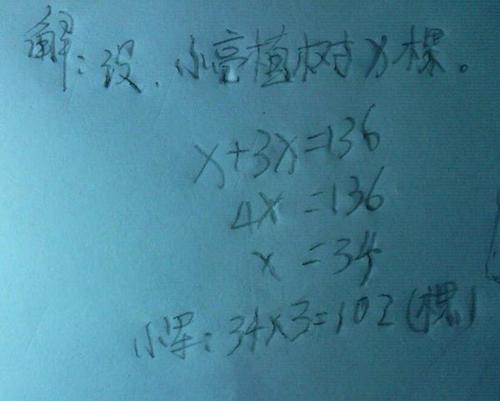 解:设.小亮植树x棵。
x+3x=136
4x=136
x=34
小军:34×3=102(棵)